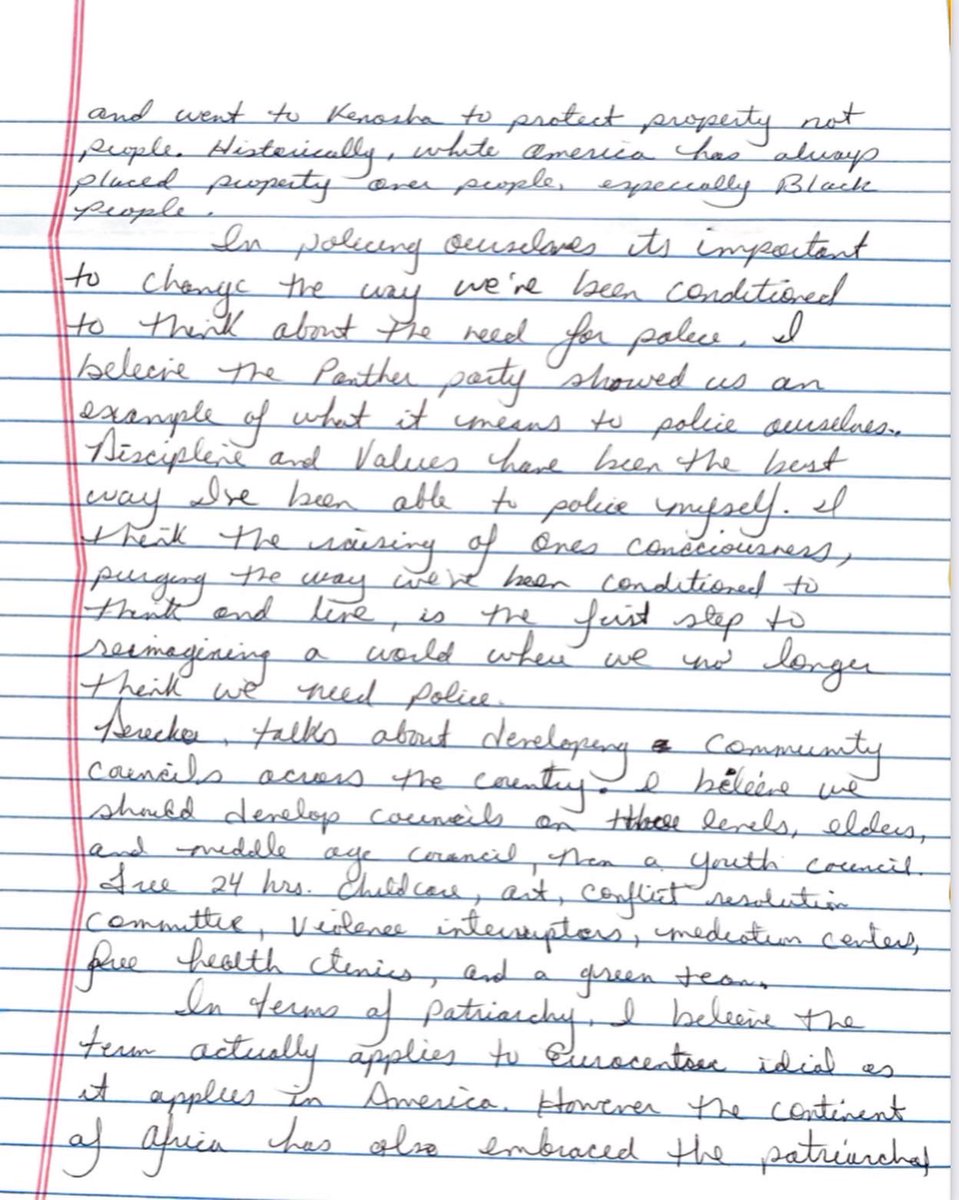 and went to Kenosha to protect property not
people. Historically, white america has always
placed property over people, especially Black
people.
In policing ourselves its important
to change the way we're been conditioned
to think about the need for police. I
beleive the Panther party showed us an
example of what it means to police ourselves.
Discipline and Values have been the best
way I've been able to police myself. I
think the raising of ones conciousness,
purging the way we've been conditioned to
think and live, is the first step to
reimagining a world where we no longer
think we need police.
Derecka, talks about developing community
councils across the country. I beleive we
should develop councils on three levels, elders,
and middle age council, then a youth council.
Free 24 hrs. childcare, art, conflict resolution
committee, violence interruptors, mediation centers,
free health clinics, and a green team.
In terms of patriarchy, I beleive the
term actually applies to Eurocentric idial as
it applies in America. However the continent
of africa has also embraced the patriarchal